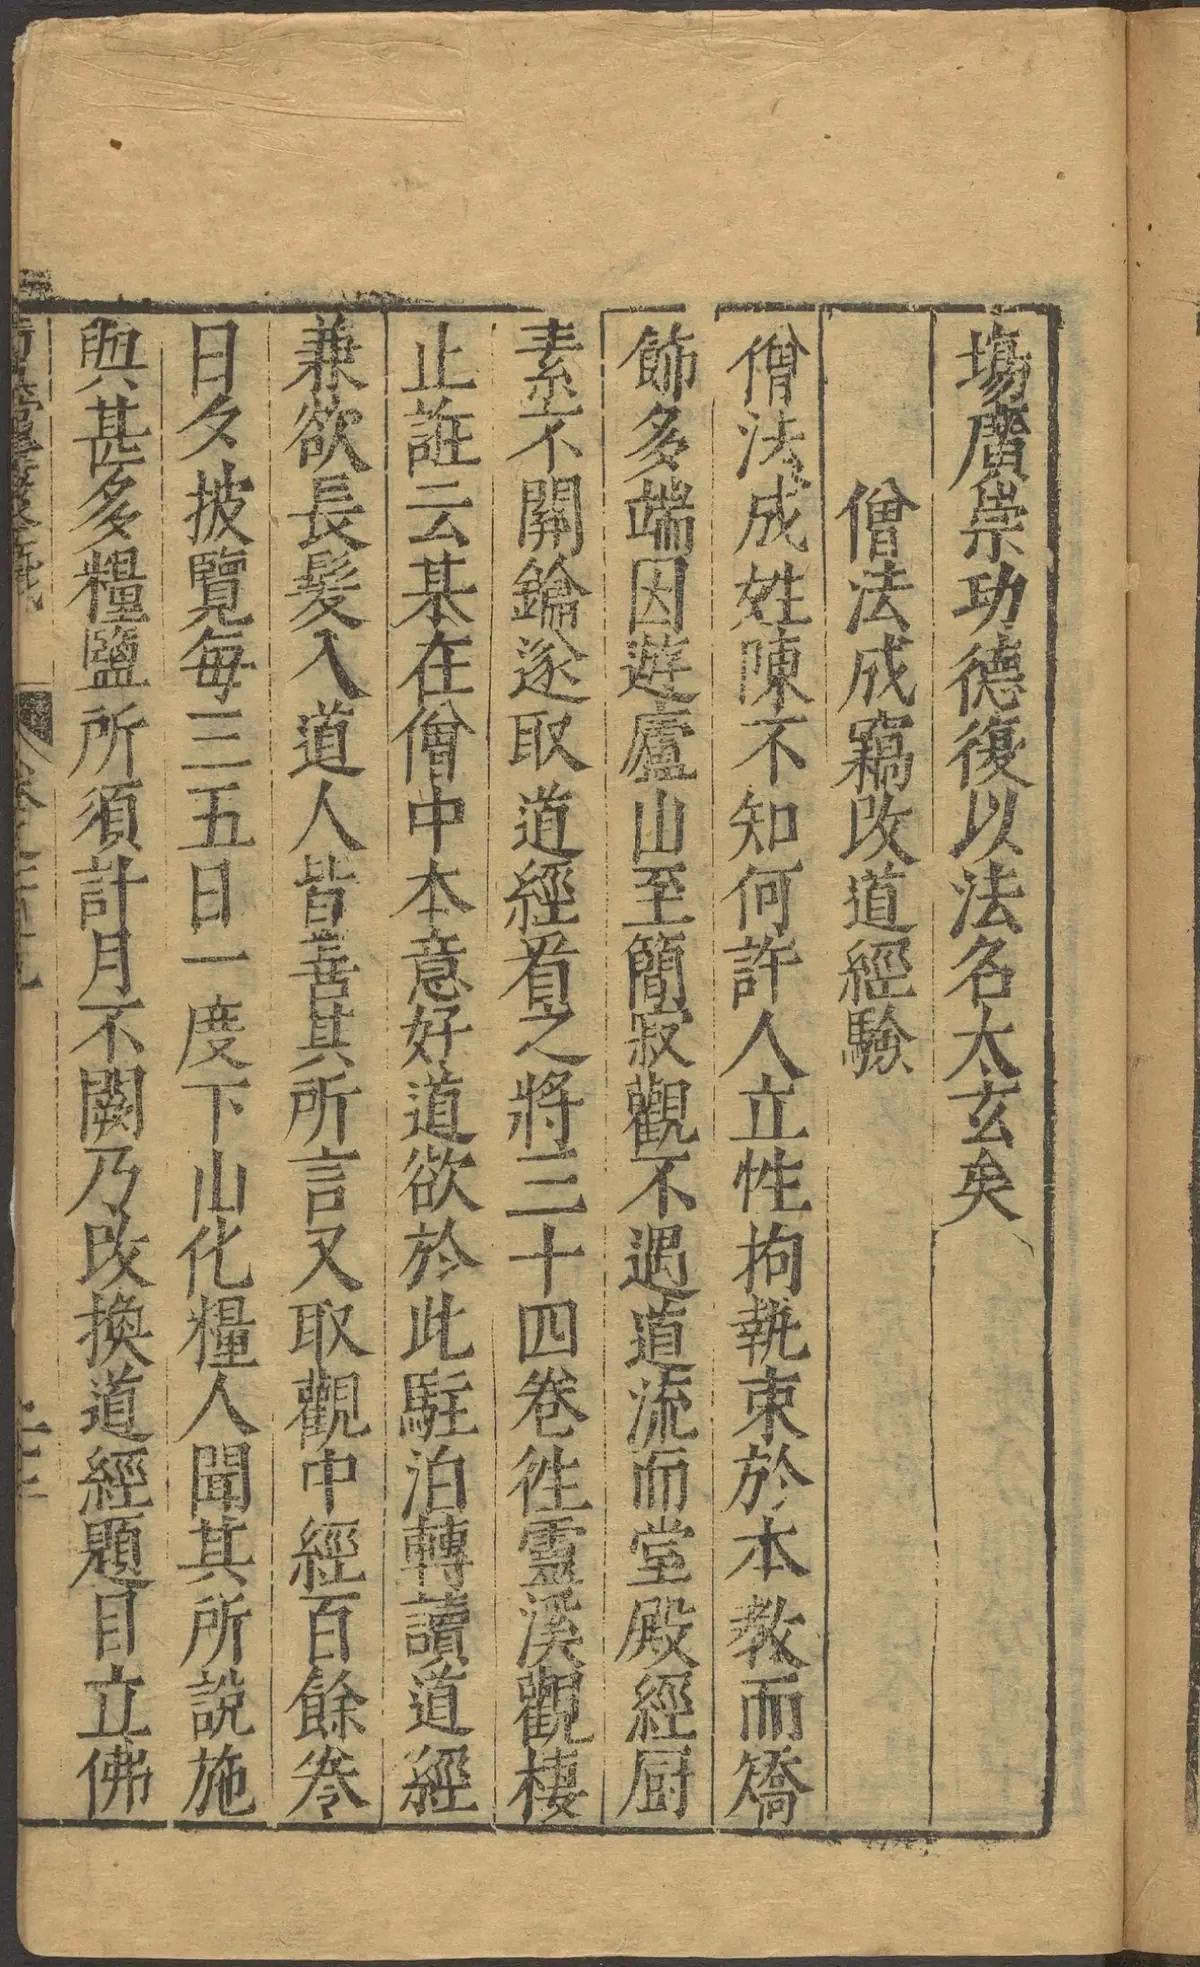 塲廣崇功德復以法名太玄矣
僧法成竊改道經驗
僧法成姓陳不知何許人立性拘執束於本教而矯
飾多端因遊廬山至簡寂觀不遇道流而堂殿經厨
素不關鑰遂取道經看之將三十四卷徃靈溪觀棲
止誑云某在僧中本意好道欲於此駐泊轉讀道經
兼欲長髮入道人皆善其所言又取觀中經百餘卷
日夕披覽每三五日一度下山化糧人聞其所說施
與甚多糧鹽所須計月不闕乃改換道經題目立佛